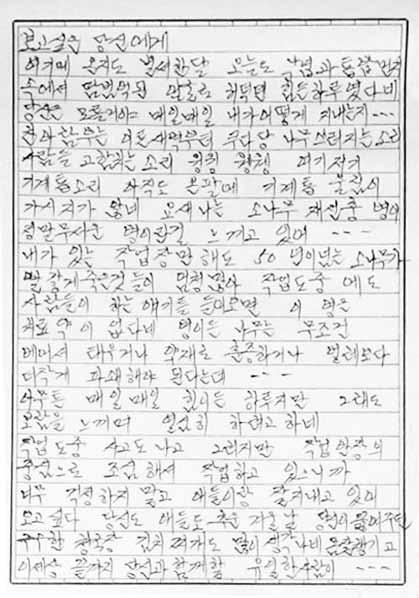 보고싶은 당신에게
여기에 온지도 벌써한달 오늘도 낙엽과 톱밥 먼지
속에서 땀범벅된 하루 였다네
당신은 모를거야 매일매일 내가어떻게 지내는지---
이른새벽부터 우다당 나무 쓰러지는소리
사람들 고함치는 소리 윙윙 여기저기
기계톱소리 아직도 기계톱
가시지가 않네 요새 나는 소나무 재선충 병이
정말무서운 병이란걸 느끼고 있어 ---
내가 있는 작업장만 해도 50년이넘는 소나무가
빨갛게죽은것들이 엄청많아 작업도중에도
사람들이 하는얘기를 들어보면 이 병은
치료약이 없다네 병이든 나무는 무조건
베어서 태우거나 약재로 훈증하거나
더작게 파쇄해야 된다는데 ---
아무튼 매일매일 힘이든 하루지만 그래도
보람을 느끼며 열심히 하려고 하네
작업도중 사고도 나고 그러지만 작업안장의
중심으로 조심해서 작업하고 있으니까
너무 걱정하지 말고 애들이랑 잘지내고 있어
보고싶다 당신도 애들도 추운 겨울날 당신이
한 청국장 김치 찌개도 많이 생각나네 몸 잘챙기고
이세상 끝까지 당신과함께할 유일한사람이 ---